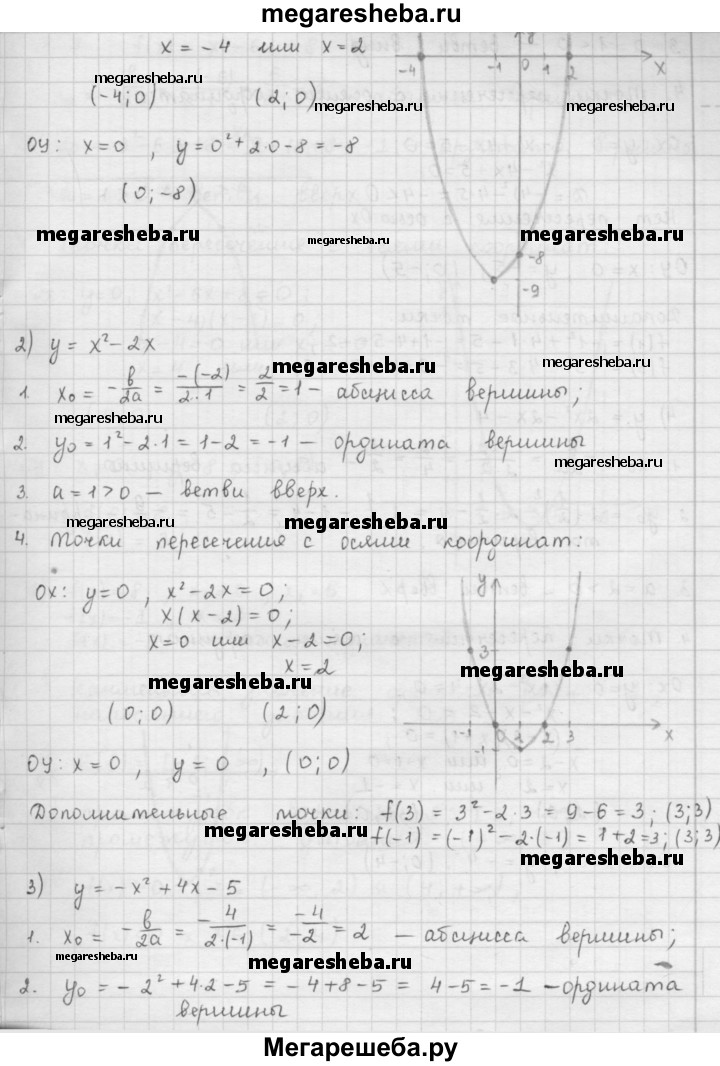 megaresheba.ru
x = -4 или x = 2
megaresheba.ru
(-4; 0) (2; 0)
megaresheba.ru
-4 -1 0 1 2 x
8
ОУ: x = 0 , y = 0² + 2·0 - 8 = -8
(0; -8)
megaresheba.ru
megaresheba.ru
megaresheba.ru
-8
-9
2) y = x² - 2x
megaresheba.ru
megaresheba.ru
1. x₀ = -в/2a = -(-2)/2·1 = 2/2 = 1 - абсцисса вершины;
megaresheba.ru
2. y₀ = 1² - 2·1 = 1 - 2 = -1 - ордината вершины
megaresheba.ru
3. a = 1 > 0 - ветви вверх.
megaresheba.ru
megaresheba.ru
4. Точки пересечения с осями координат:
ОX: y = 0 , x² - 2x = 0;
x(x - 2) = 0;
x = 0 или x - 2 = 0;
x = 2
y
3
megaresheba.ru
megaresheba.ru
(0; 0) (2; 0)
-1 0 1 2 3 x
-1
ОУ: x = 0 , y = 0 , (0; 0)
Дополнительные точки: f(3) = 3² - 2·3 = 9 - 6 = 3; (3; 3)
megaresheba.ru
f(-1) = (-1)² - 2·(-1) = 1 + 2 = 3; (3; 3)
megaresheba.ru
3) y = -x² + 4x - 5
1. x₀ = -в/2a = -4/2·(-1) = -4/-2 = 2 - абсцисса вершины;
megaresheba.ru
megaresheba.ru
megaresheba.ru
2. y₀ = -2² + 4·2 - 5 = -4 + 8 - 5 = 4 - 5 = -1 - ордината
вершины
Мегарешеба.ру